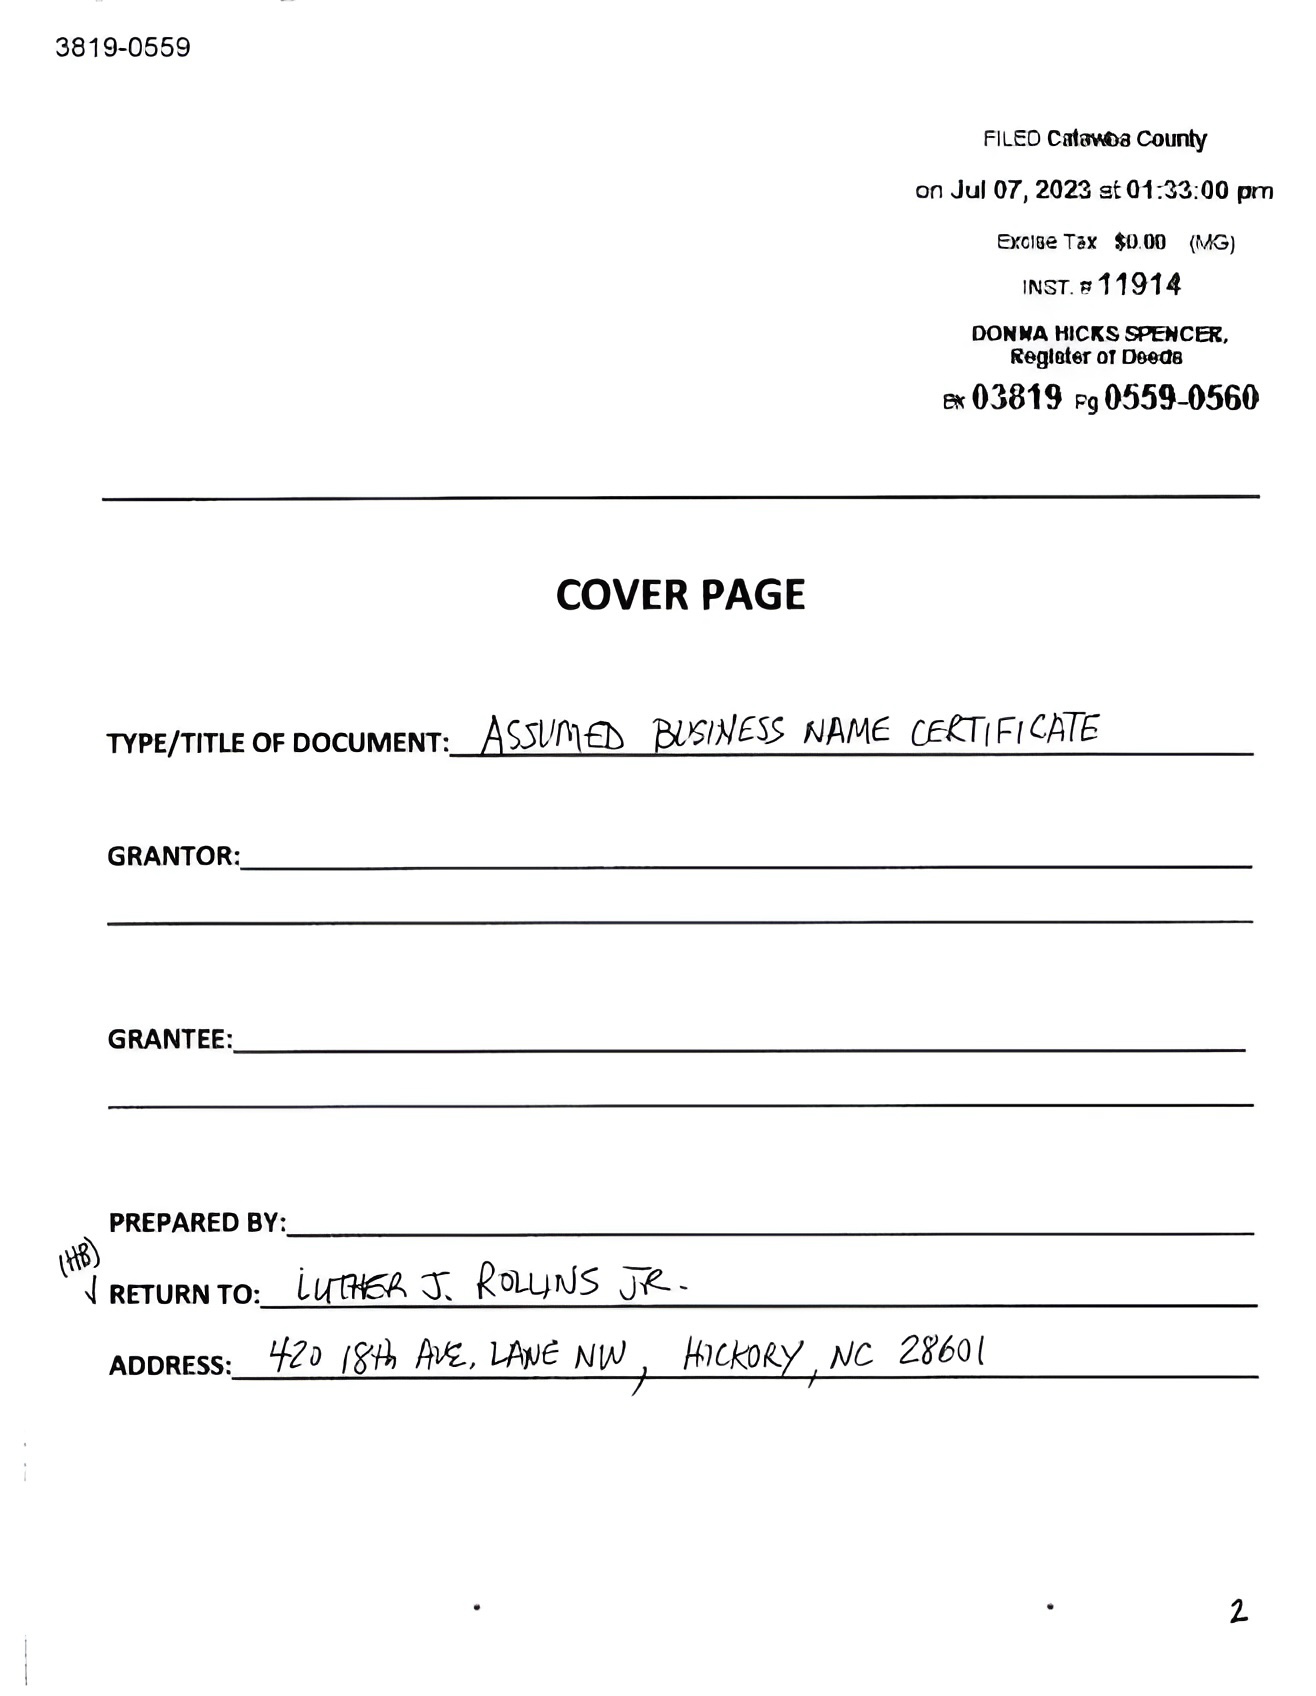 3819-0559
FILED Catawba County
on Jul 07, 2023 at 01:33:00 pm
Excise Tax $0.00 (MG)
INST. # 11914
DONNA HICKS SPENCER,
Register of Deeds
Bk 03819 Pg 0559-0560
COVER PAGE
TYPE/TITLE OF DOCUMENT: ASSUMED BUSINESS NAME CERTIFICATE
GRANTOR:
GRANTEE:
PREPARED BY:
(HB)
RETURN TO: LUTHER J. ROLLINS JR.
ADDRESS: 420 18th AVE. LANE NW, HICKORY, NC 28601
2